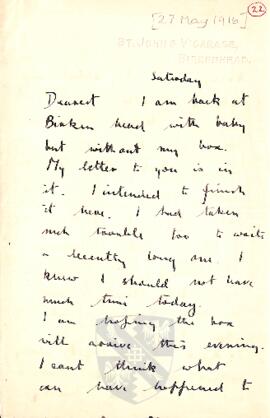 [27 May 1916]
(22)
ST. JOHN'S VICARAGE,
BIRKENHEAD.
Saturday
Dearest I am back at
Birken head with baby
but without my box.
My letter to you is in
it. I intended to finish
it here. I had taken
such trouble too to write
a decently long one. I
knew I should not have
much time today.
I am hoping the box
will arrive this evening.
I cant think what
can have happened to